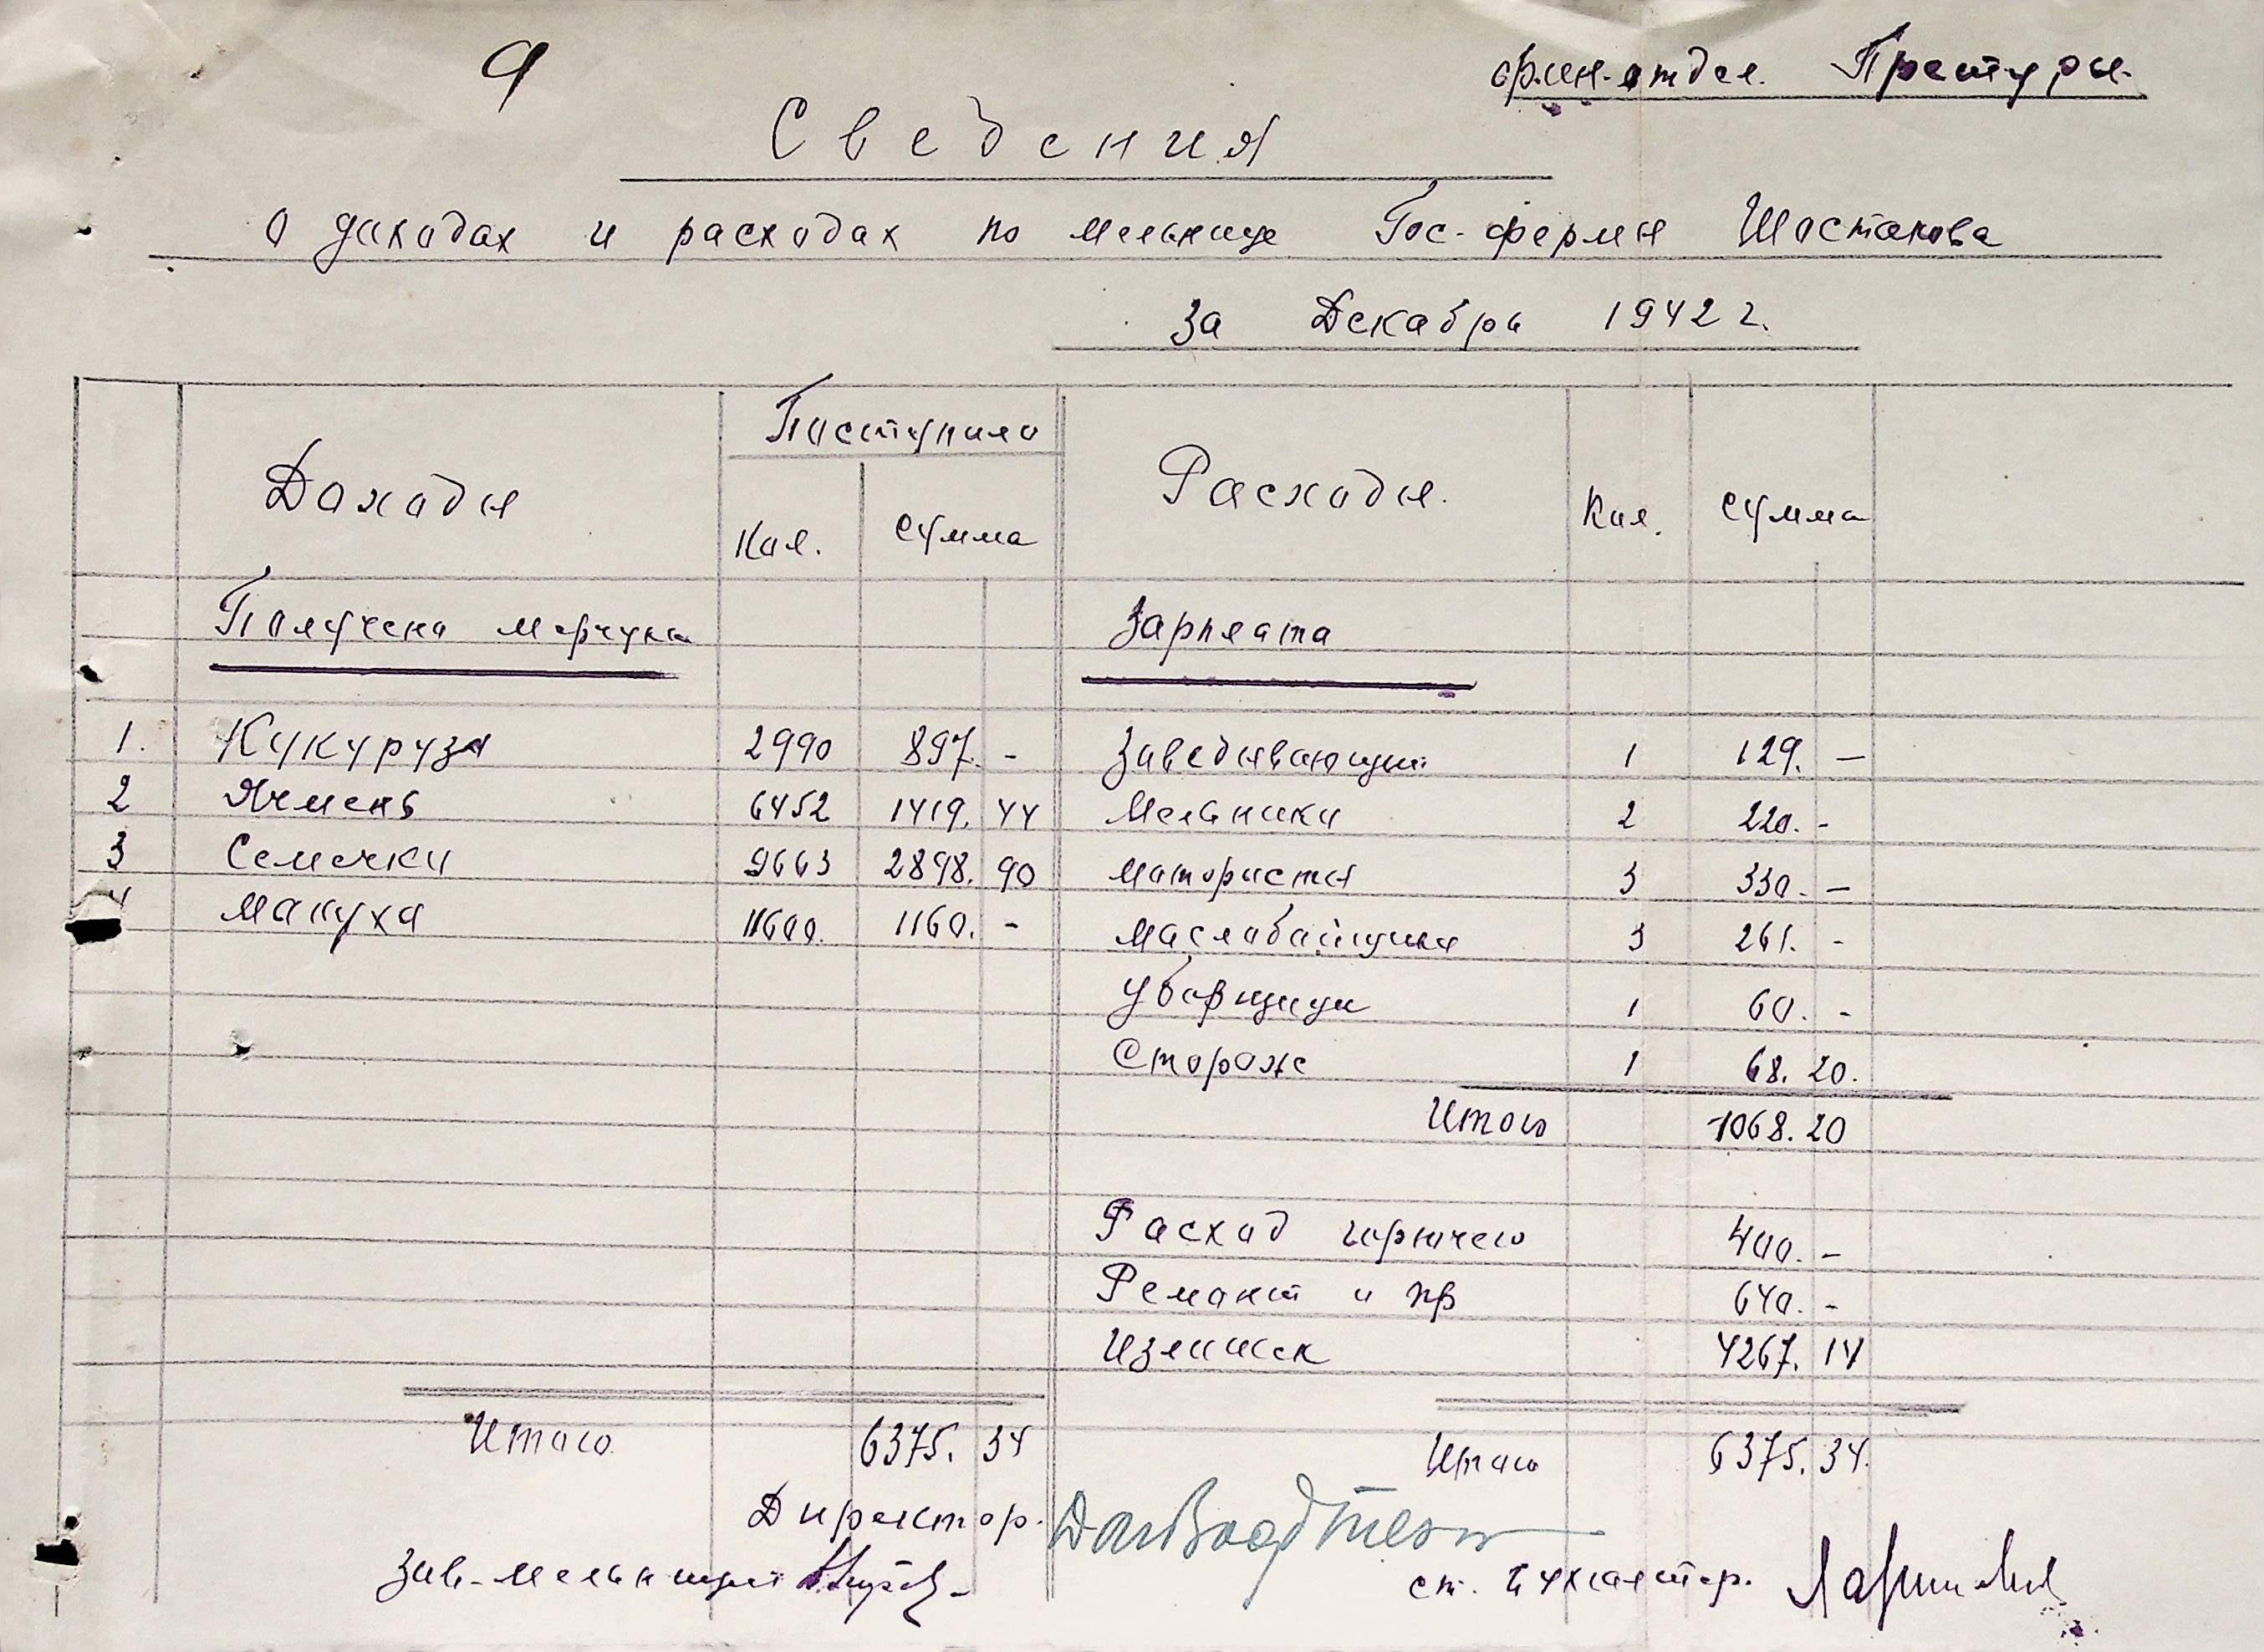 9
фин-отдел. Претуры.
Сведения
о доходах и расходах по мельнице Гос-фермы Шостакова
за Декабрь 1942 г.
Доходы Поступило Расходы. Кол. Сумма
Кол. Сумма
Получено мерчука Зарплата
1. Кукуруза 2990 897. - Заведывающий 1 129. —
2 Ячмень 6452 1419. 44 Мельники 2 220. -
3 Семечки 9663 2898. 90 мотористы 3 330. —
4 Макуха 11600. 1160. - маслобойщики 3 261. -
Уборщицы 1 60. -
Сторож 1 68. 20.
Итого 1068. 20
Расход горючего 400. —
Ремонт и пр 640. -
Излишек 4267. 14
Итого 6375. 34 Итого 6375. 34.
Директор.
Зав-мельницей ст. бухгалтер.